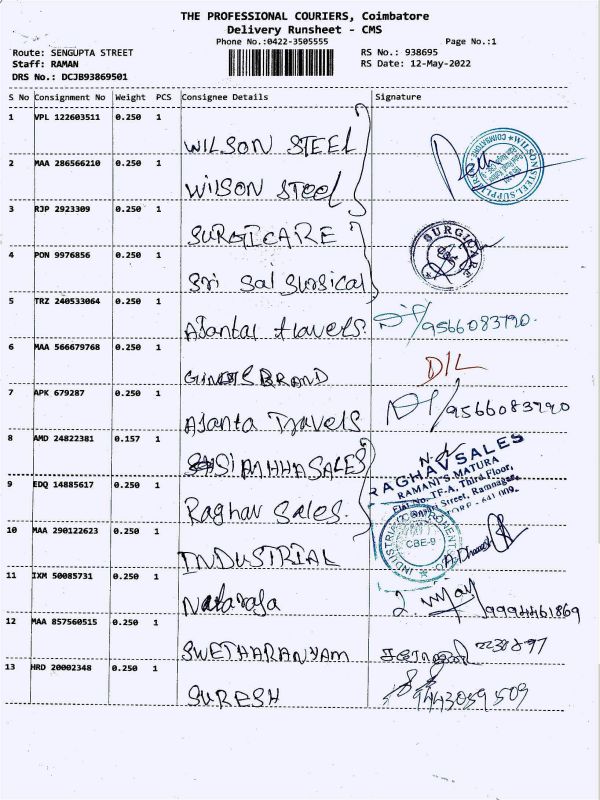 THE PROFESSIONAL COURIERS, Coimbatore
Delivery Runsheet - CMS
Phone No.:0422-3505555
Page No.:1
Route: SENGUPTA STREET
RS No.: 938695
Staff: RAMAN
RS Date: 12-May-2022
DRS No.: DCJB93869501
S No Consignment No Weight PCS Consignee Details Signature
1 VPL 122603511 0.250 1
WILSON STEEL
WILSON STEEL SUPPLIERS COIMBATORE
2 MAA 286566210 0.250 1
Wilson Steel
3 RJP 2923309 0.250 1
SURGICARE
SURGICARE
4 PON 9976856 0.250 1
Sri Sai Surgical
5 TRZ 240533064 0.250 1
AJantai travels. 9566083790
6 MAA 566679768 0.250 1
BRAND D/L
7 APK 679287 0.250 1
AJanta Travels 9566083790
8 AMD 24822381 0.157 1
SALES
RAGHAV SALES
RAMANI'S MATURA
Flat No. TF-A, Third Floor,
Street, Ramnagar,
9 EDQ 14885617 0.250 1
Raghav Sales.
10 MAA 290122623 0.250 1
INDUSTRIAL
INDUSTRIAL COMPONENTS CO
CBE-9
11 IXM 50085731 0.250 1
Nataraja 9994461869
12 MAA 857560515 0.250 1
SWETHARANYAM 2238897
13 HRD 20002348 0.250 1
SURESH 9443059509